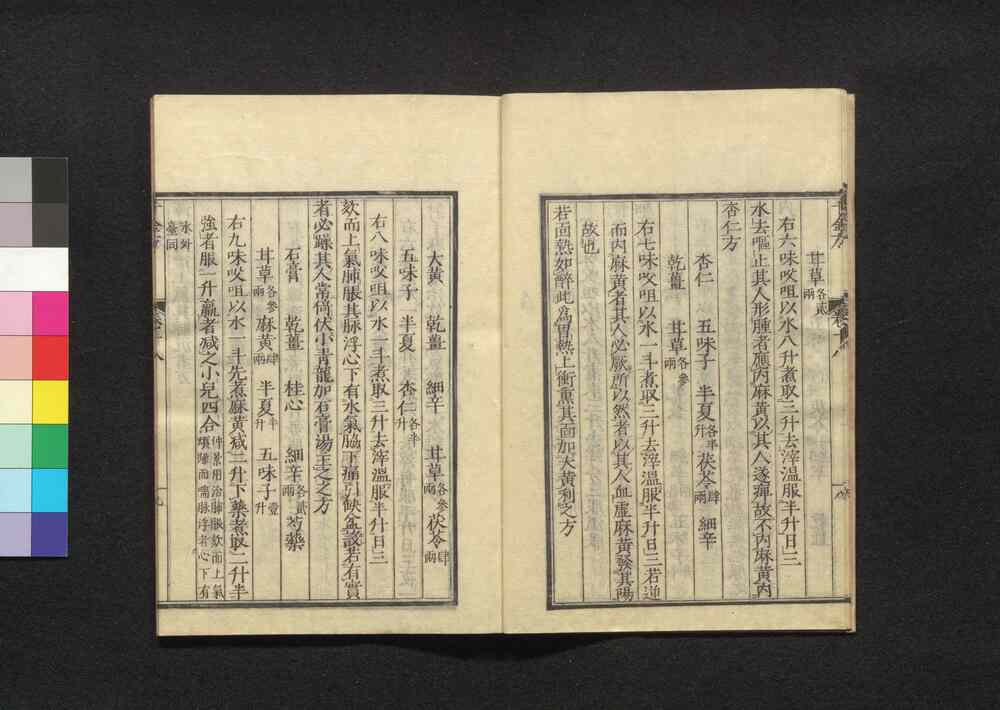 甘草各貳兩
右六味㕮咀以水八升煮取三升去滓溫服半升日三
水去嘔止其人形腫者應內麻黃以其人遂痺故不內麻黃內
杏仁方
杏仁 五味子 半夏各半升 茯苓肆兩 細辛
乾薑 甘草各參兩
右七味㕮咀以水一斗煮取三升去滓溫服半升日三若逆
而內麻黃者其人必厥所以然者以其人血虛麻黃發其陽
故也
若面熱如醉此為胃熱上衝熏其面加大黃利之方
大黃 乾薑 細辛 甘草各參兩 茯苓肆兩
五味子 半夏 杏仁各半升
右八味㕮咀以水一斗煮取三升去滓溫服半升日三
欬而上氣肺脹其脈浮心下有水氣脇下痛引缺盆設若有實
者必躁其人常倚伏小青龍加石膏湯主之之方
石膏 乾薑 桂心 細辛各貳兩 芍藥
甘草各參兩 麻黃肆兩 半夏半升 五味子壹升
右九味㕮咀以水一斗先煮麻黃減二升下藥煮取二升半
強者服一升羸者減之小兒四合仲景用治肺脹欬而上氣
煩躁而喘脈浮者心下有
水外
臺同